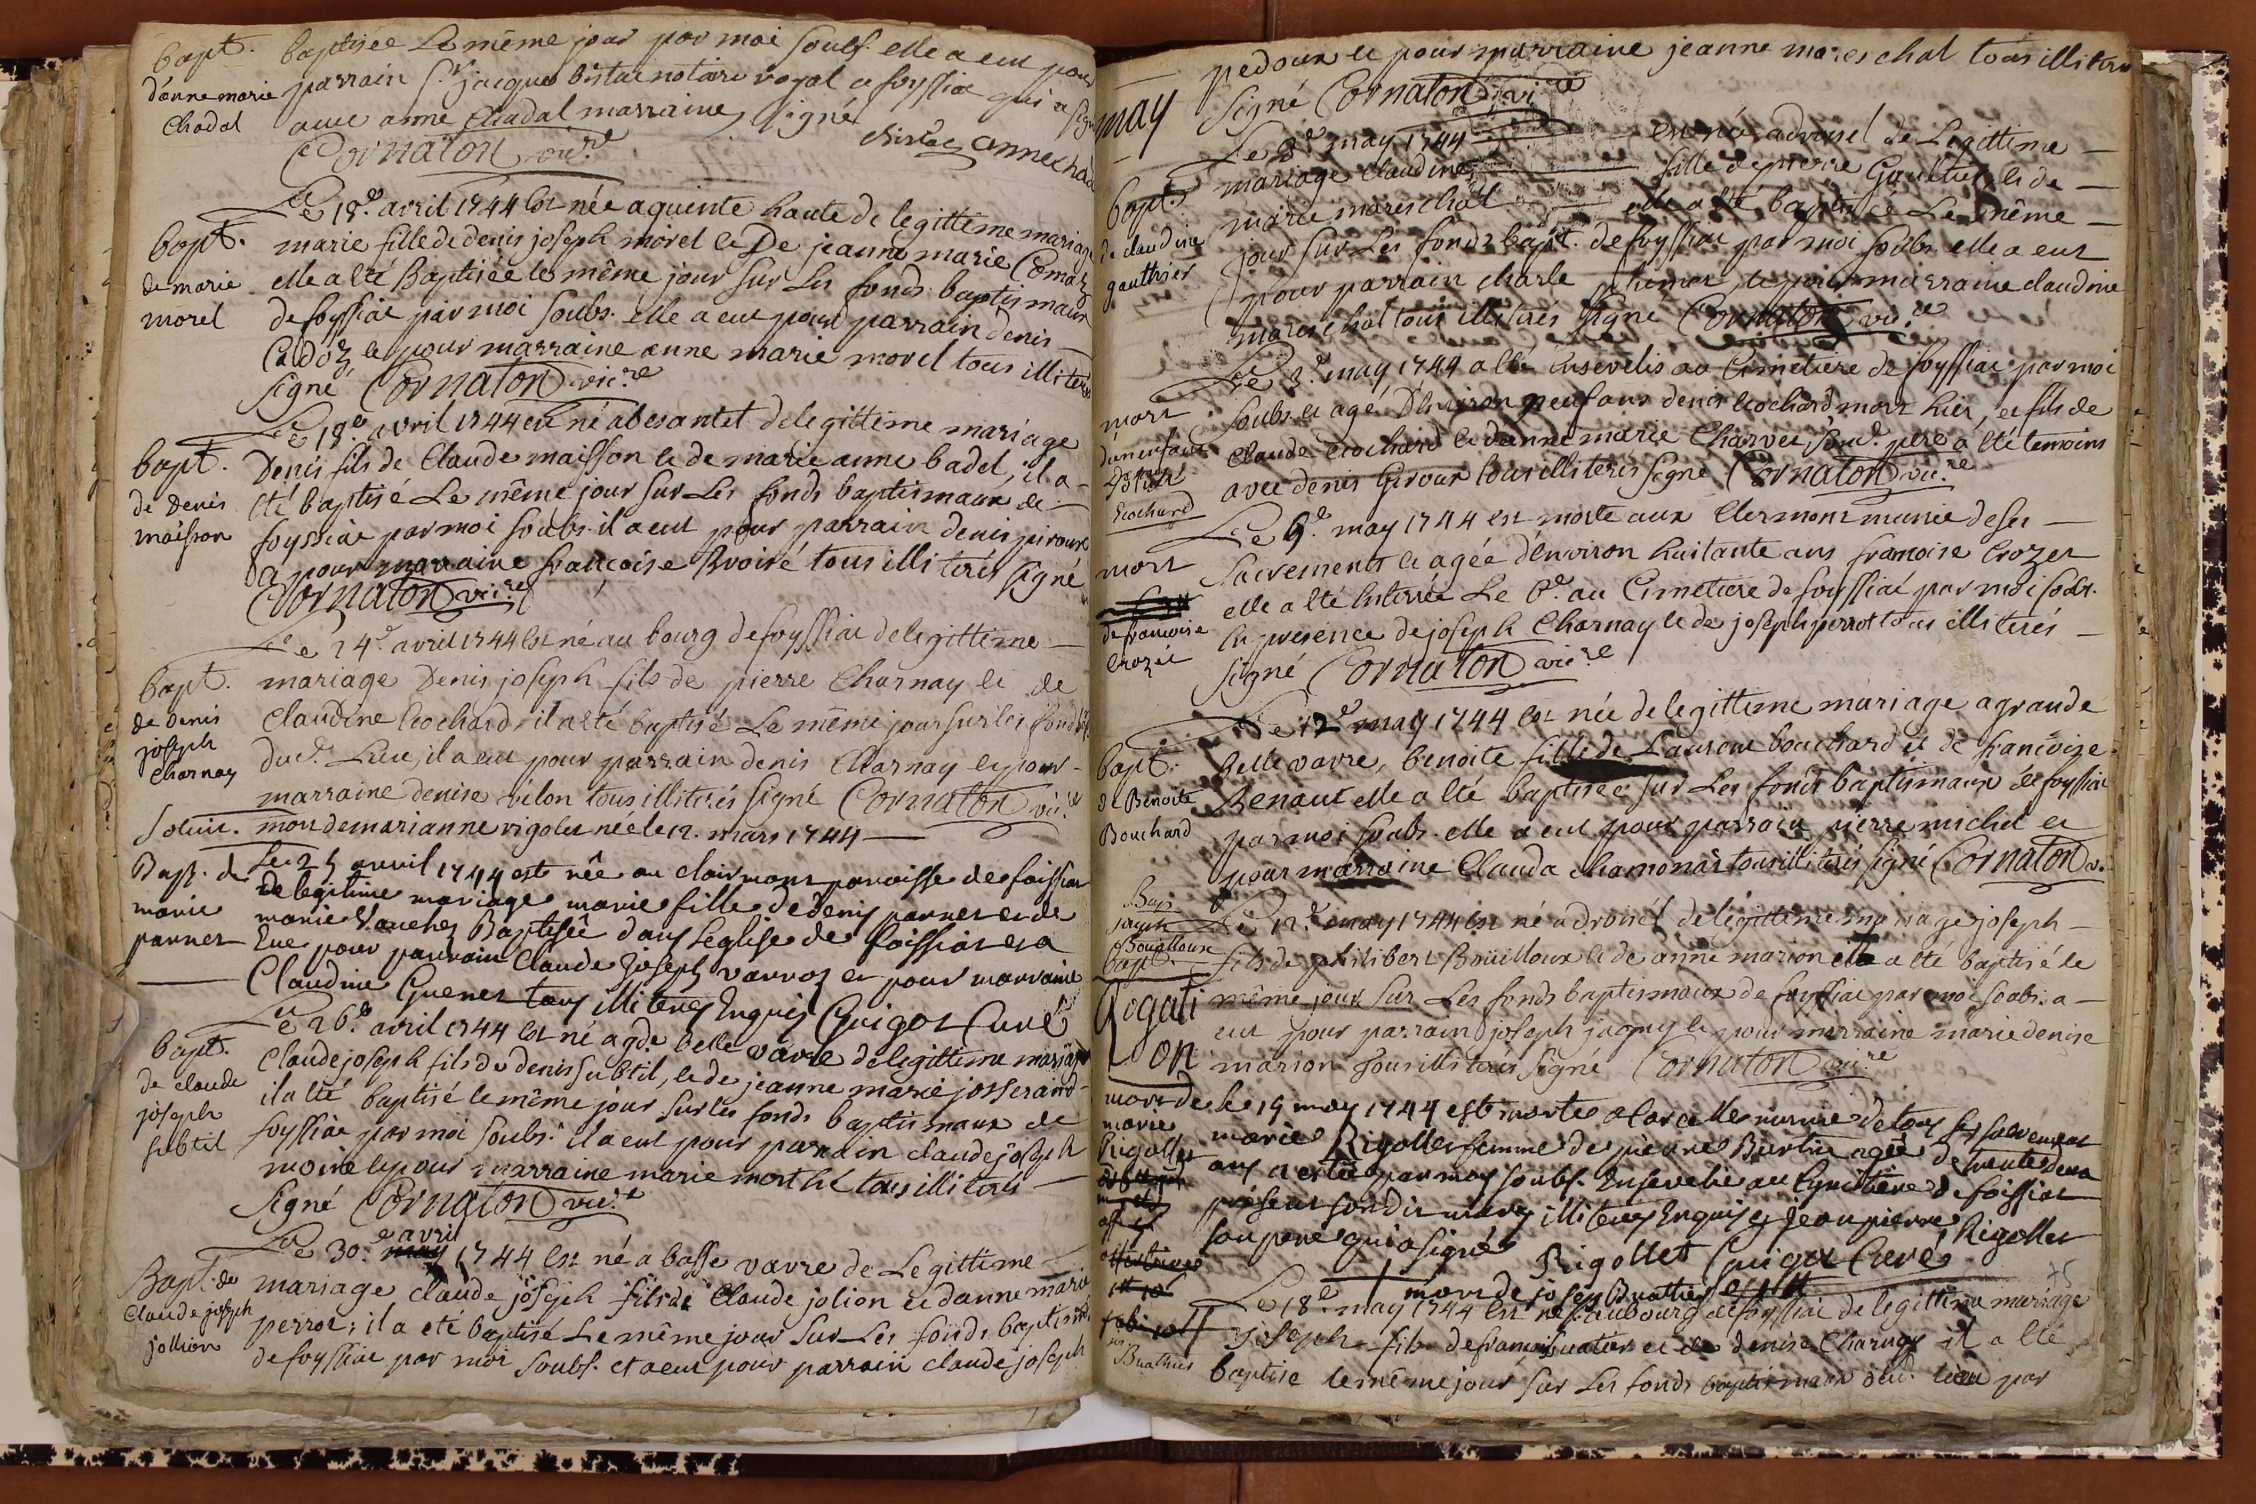 bapt.
d'anne marie
Chadal
baptisée Le même jour par moi soubs. elle a eut pour
parrain Sr jacque bistac notaire royal a foyssiat qui a signé
avec anne Chadal marraine, signé
Cornaton vicre. Bistac anne chadal
bapt.
de marie
morel
Le 18e avril 1744 est née a quinte haute de legittime mariage
marie fille de denis joseph morel et De jeanne marie Comas
elle a été Baptisée le même jour sur Les fonds baptismaux
de foyssiat par moi soubs. elle a eut pour parrain denis
Cadoz et pour marraine anne marie morel tous illiterés
signé Cornaton vicre
bapt.
de Denis
maisson
Le 18e avril 1744 est né a besantet de legittime mariage
Denis fils de Claude maisson et de marie anne badel, il a
été baptisé Le même jour sur Les fonds baptismaux de
foyssiat par moi soubs. il a eut pour parrain denis piroux
et pour marraine françoise Broiré tous illiterés signé
Cornaton vicre
bapt.
de denis
joseph
Charnay
Le 24e avril 1744 est né au bourg de foyssiat de legittime
mariage Denis joseph fils de pierre Charnay et de
Claudine Ecochard il a été baptisé Le même jour sur les fonds
dud. Lieu, il a eut pour parrain denis Charnay et pour
marraine denise vélon tous illiterés signé Cornaton vicre
mort de marianne rigolet née le 12. mars 1744
Bapt. de
marie
pannet
Le 25 avril 1744 est née au clairmont paroisse de foissiat
de legitime mariage marie fille de denis pannet et de
marie Vauchez Baptisée dans Leglise de foissiat et a
Eue pour parrain Claude Joseph varroz et pour marraine
Claudine Guenet tous illiterez Enquis Guigot Curé
bapt.
de claude
joseph
subtil
Le 26e avril 1744 est né a gde belle vavre de legittime mariage
Claude joseph fils de denis subtil, et de jeanne marie josserand
il a été baptisé le même jour sur les fonds baptismaux de
foyssiat par moi soubs. il a eut pour parrain claude joseph
moine et pour marraine marie morthé tous illiterés
signé Cornaton vicre
Bapt. de
Claude joseph
jollion
avril
Le 30e 1744 est né a basse vavre de Legittime
mariage claude joseph fils de Claude jolion et danne marie
perrot; il a eté baptisé Le même jour sur Les fonds baptism.
de foyssiat par moi soubs. et a eut pour parrain claude joseph
pedoux et pour marraine jeanne mareschal tous illiterés
signé Cornaton vicre
may
bapt.
de claudine
gauthier
Le 3e may 1744 est née a dronsel de Legittime
mariage Claudine fille de pierre Gaultier et de
marie mareschal elle a été baptisée Le même
jour sur Les fonds bapt. de foyssiat par moi soubs. elle a eut
pour parrain charle et pour marraine claudine
mareschal tous illiterés signé Cornaton vicre
mort
d'un enfant
Ecochard
Le 3e may 1744 a été ensevelis au Cimetiere de foyssiat par moi
soubs. et agé D'environ neuf ans denis Ecochard mort hier, et fils de
Claude Ecochard et danne marie Charvet, soud. pere a été temoins
avec denis Giroux tous illiterés signé Cornaton vicre
mort
de francoise
Crozet
Le 9e may 1744 est morte aux Clermont munie de ses
sacrements et agée d'environ huitante ans francoise Crozet
elle a été Enterrée Le e au Cimetiere de foyssiat par moi soubs.
En presence de joseph Charnay et de joseph perrot tous illiterés
signé Cornaton vicre
bapt.
de Benoite
Bouchard
Le 12e may 1744 est née de legittime mariage a grande
belle vavre, benoite fille de Laurent bouchard et de françoise
Renaut elle a été baptisée sur Les fonds baptismaux de foyssiat
par moi soubs. elle a eut pour parrain pierre michel et
pour marraine Clauda chamonat tous illiterés signé Cornaton v.
Bap
joseph
Bouilloux
bapt.
Le 12e may 1744 est né a dronsel de legittime mariage joseph
fils de philibert Bouilloux et de anne marion a été baptisé le
même jour sur Les fonds baptismaux de foyssiat par moi soubs. a
eut pour parrain joseph jagny et pour marraine marie denise
marion tous illiterés signé Cornaton vicre
Rogati
on
mort de
marie
Rigollet
le 19 may 1744 est morte a Corcelle munie de tous ses sacrement
marie Rigollet femme de pierre Burtin agée de trente deux
ans a esté par moy soubs. Ensevelie au Cymitière de foissiat
présent sondit mary illiterez Enquis et Jean pierre Rigollet
son pere qui a signé Rigollet Guigot Curé
mort de josep Buathier
75
Buathier
Le 18e may 1744 est né au bourg de foyssiat de legittime mariage
joseph fils de francois buatier et de denise Charnay il a été
baptise le même jour sur Les fonds baptismaux dud. lieu par